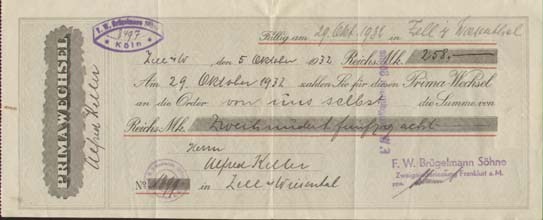 PRIMA-WECHSEL
Alfred Keller
F. W. Brügelmann Söhne
Köln
Fällig am 29. Okt. 1932 in Zell i/ Wiesenthal
Zell i/W den 5 Oktober 1932 Reichs Mk. 258.-
Am 29 Oktober 1932 zahlen Sie für diesen Prima-Wechsel
an die Order von uns selbst die Summe von
Reichs Mk. Zweihundert fünfzig acht
Herrn
Alfred Keller
No. in Zell i Wiesental
F. W. Brügelmann Söhne
Zweigniederlassung Frankfurt a.M.
ppa.